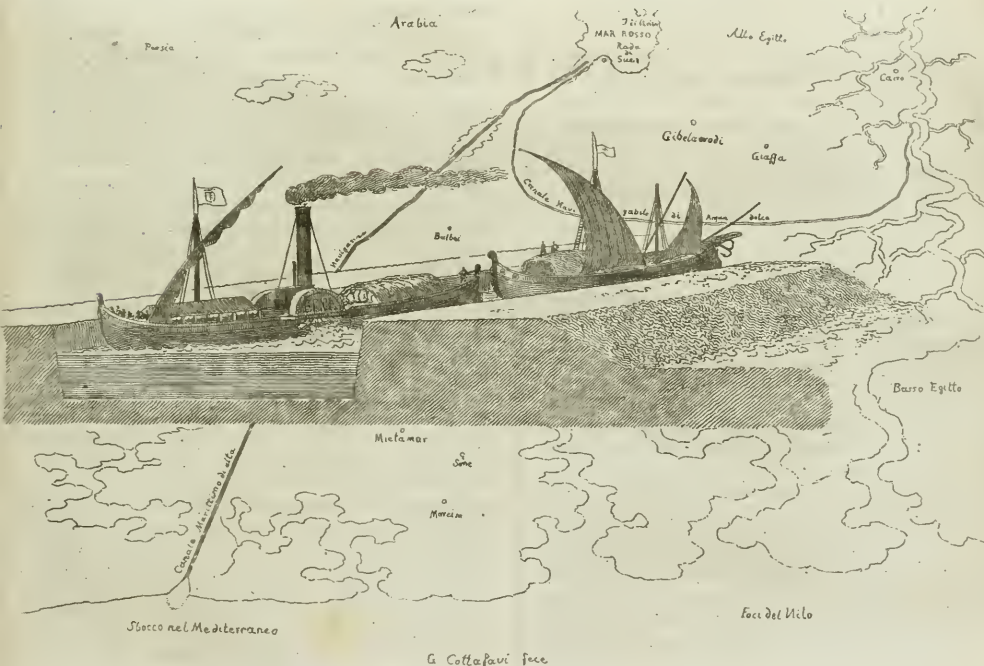 Arabia
Persia
MAR ROSSO
Rada
di
Suez
Alto Egitto
Cairo
Gibelamodi
Giaffa
Canale Navigabile di Acqua dolce
Naviganza
Balbei
Basso Egitto
Mictamar
Sone
Canale Marittimo di alta
Sbocco nel Mediterraneo
Foci del Nilo
G Cottafavi fece